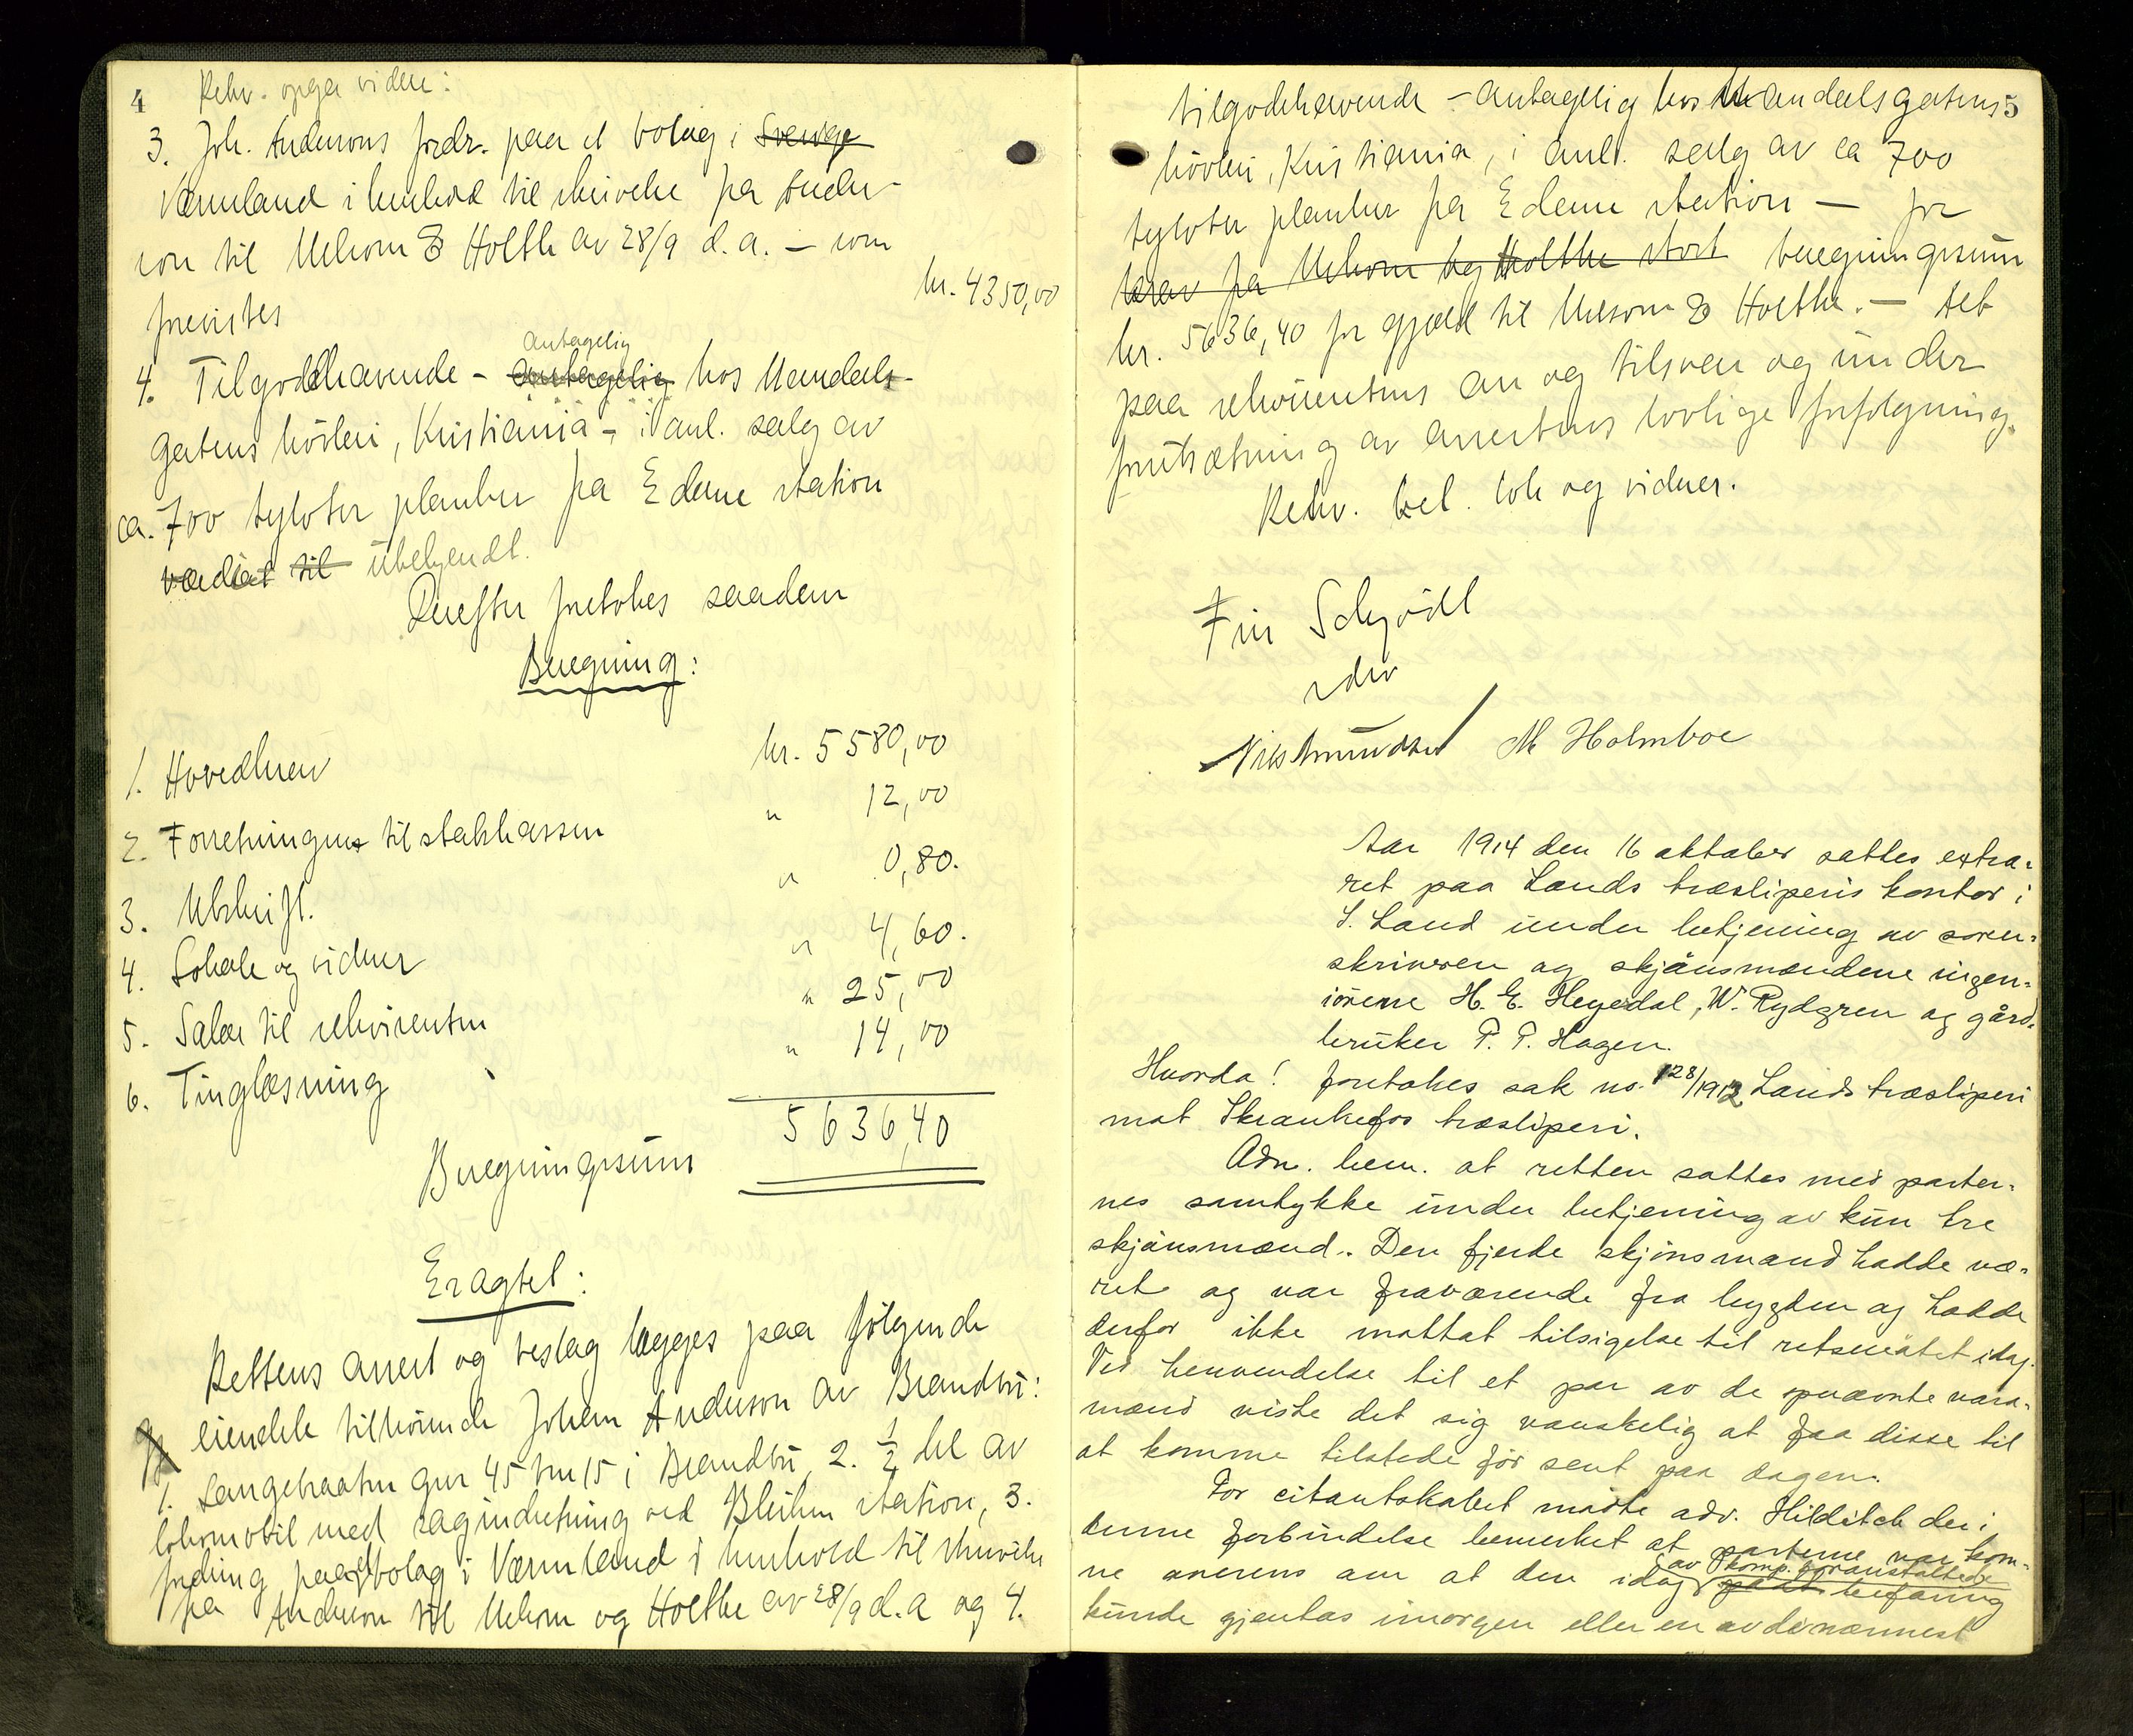 4
Rekv. opga videre:
3. Joh. Andersons fordr. paa et bolag i Sverige
Vermland i henhold til skrivelse fra Ander-
son til Melsom & Holthe av 28/9 d.a. – som
kr. 4350,00
forevistes
antagelig
4. Tilgodehavende – antagelig hos Mandals-
gatens høvleri, Kristiania – i anl. salg av
ca. 700 tylvter planker fra Edane station
værdiat til ubekjendt.
Derefter foretokes saadan
Beregning:
1. Hovedkrav kr. 5580,00
2. Forretningens til statskassen " 12,00
3. Utskrift. " 0,80.
4. Lokale og vidner " 4,60.
5. Salær til rekvirenten " 25,00
6. Tinglæsning " 14,00
Beregningssum 5636,40
Eragtet:
Rettens arrest og beslag lægges paa følgende
eiendele tilhørende Johan Anderson av Brandbu:
1. Langebraaten gnr 45 bnr 15 i Brandbu 2. 1/2 del av
lokomobil med sagindretning ved Bleiken station, 3.
fordring paa et bolag i Vermland i henhold til skrivelse
fra Anderson til Melsom og Holthe av 28/9 d.a og 4.
5
tilgodehavende – antagelig hos Mandalsgatens
høvleri, Kristiania, i anl. salg av ca 700
tylvter planker fra Edane station – for
krav fra Melsom og Holthe stort beregningssum
kr. 5636,40 for gjæld til Melsom & Holthe. – Alt
paa rekvirentens an og tilsvar og under
forutsætning av arrestens lovlige forfølgning.
Rekv. bet. lok og vidner.
Finn Schjødt
sdv
Nils Amundsen M Holmboe
Aar 1914 den 16 oktober sattes extra-
ret paa Lands træsliperis kontor i
S. Land under betjening av soren-
skriveren og skjønsmændene ingen-
iørene H. E. Heyerdal, W. Rydgren og gård-
bruker P. P. Hagen.
Hvorda! foretokes sak no. 128/1912 Lands træsliperi
mot Skrankefos træsliperi.
Adm. bem. at retten sattes med parter-
nes samtykke under betjening av kun tre
skjønsmænd. Den fjerde skjønsmand hadde væ-
ret og var fraværende fra bygden og hadde
derfor ikke mottat tilsigelse til retsmøtet idag.
Ved henvendelse til et par av de opnævnte vara-
mænd viste det sig vanskelig at faa disse til
at komme tilstede før sent paa dagen.
For citantskabet møtte adv. Hilditch der i
denne forbindelse bemerket at parterne var kom-
av komp. foranstaltede
ne overens om at den idag befaring
kunde gjentas imorgen eller en av de nærmest